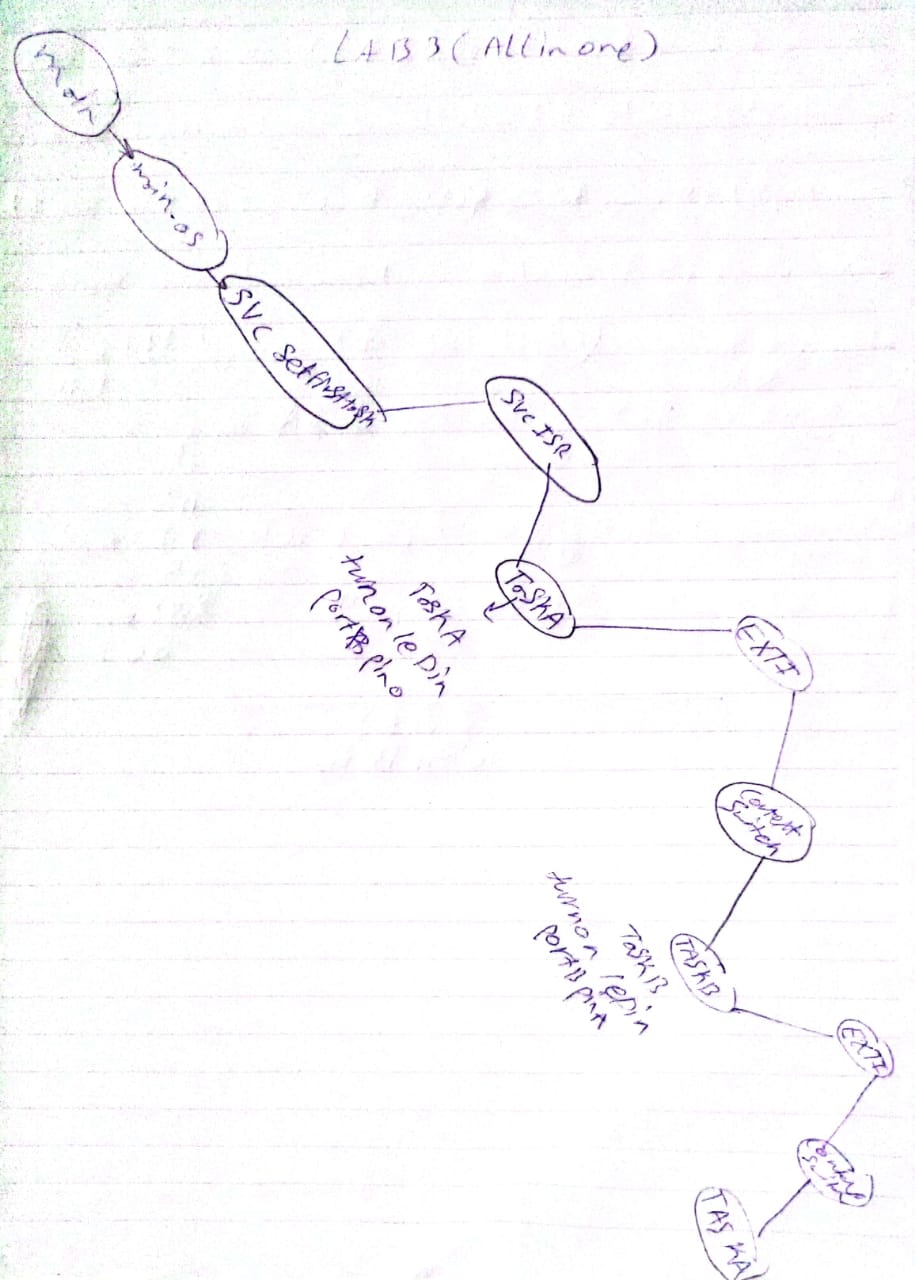 LAB3 (All in one)
main
main-os
SVC setfirsttask
SVC ISR
TaskA
TaskA
turn on led in
portB pin0
EXTI
Context
Switch
TASKB
TaskB
turn on led in
portB pin1
EXTI
Context
Switch
TASKA